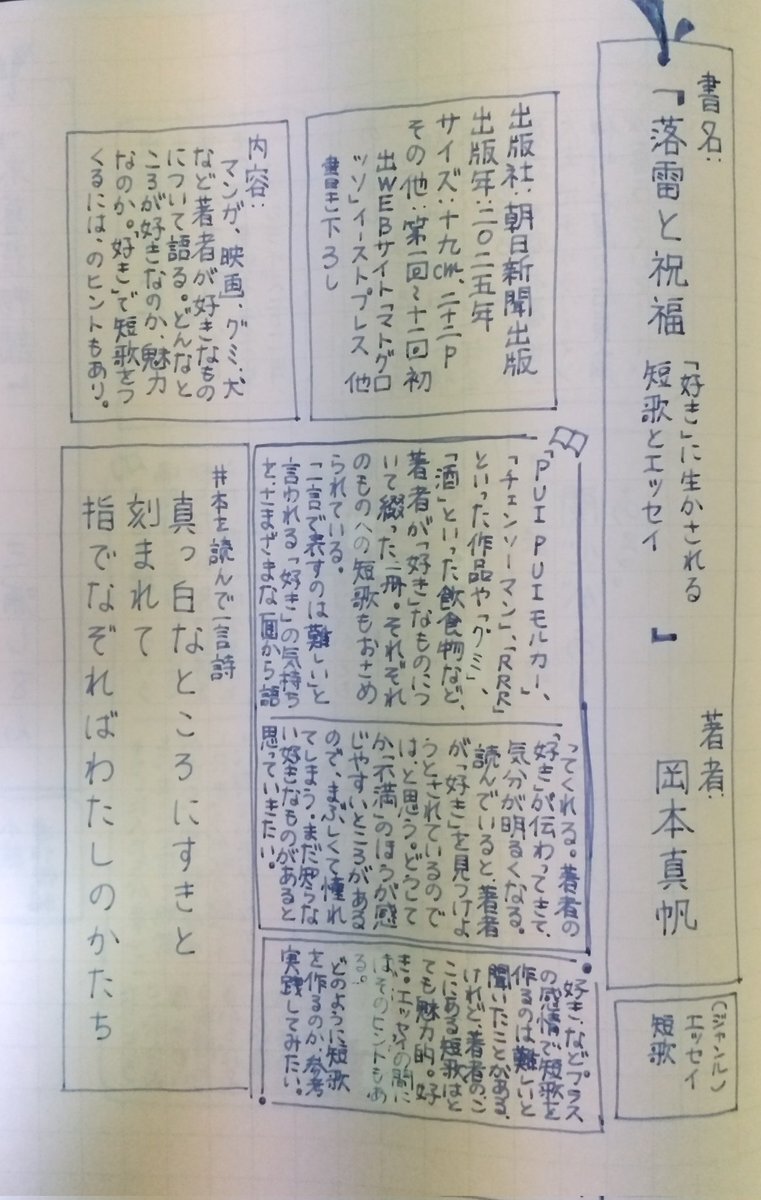 書名:
『落雷と祝福
「好き」に生かされる
短歌とエッセイ
』
著者:
岡本真帆
(ジャンル)
エッセイ
短歌
出版社:朝日新聞出版
出版年:二〇二五年
サイズ:十九cm、二十二P
その他:第一回〜十一回初
出WEBサイト「マトグロ
ッソ」イーストプレス 他
書き下ろし
内容:
マンガ、映画、グミ、犬
など著者が好きなもの
について語る。どんなと
ころが好きなのか、魅力
なのか。「好き」で短歌をつ
くるには、のヒントもあり。
「PUI PUI モルカー」、
「チェンソーマン」、「RRR」
といった作品や「グミ」、
「酒」といった飲食物など、
著者が「好き」なものにつ
いて綴った一冊。それぞれ
のものへの短歌もおさめ
られている。
「一言で表すのは難しい」と
言われる「好き」の気持ち
を、さまざまな面から語
ってくれる。著者の
「好き」が伝わってきて、
気分が明るくなる。
読んでいると、著者
が「好き」を見つけよ
うとされているので
は、と思う。どうして
か「不満」のほうが感
じやすいところがある
ので、まぶしくて憧れ
てしまう。まだ知らな
い好きなものがあると
思っていきたい。
好き、などプラス
の感情で短歌を
作るのは難しいと
聞いたことがある、
けれど、著者のこ
こにある短歌はと
ても魅力的。好
き。エッセイの間に
はそのヒントもあ
る。
どのように短歌
を作るのか、参考
実践してみたい。
#本を読んで一言詩
真っ白なところにすきと
刻まれて
指でなぞればわたしのかたち